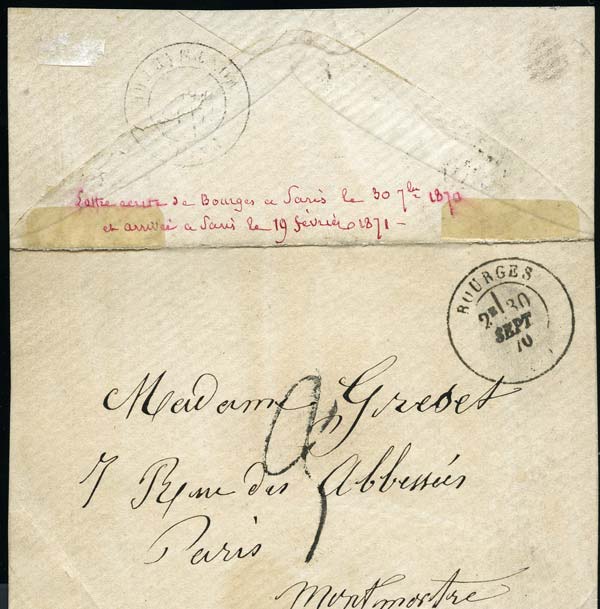 Lettre écrite de Bourges a Paris le 30 7bre 1870
et arrivée a Paris le 19 février 1871 -
BOURGES
2E/ 30
SEPT
70
Madame Gredet
7 Rue des Abbessées
Paris
Montmartre